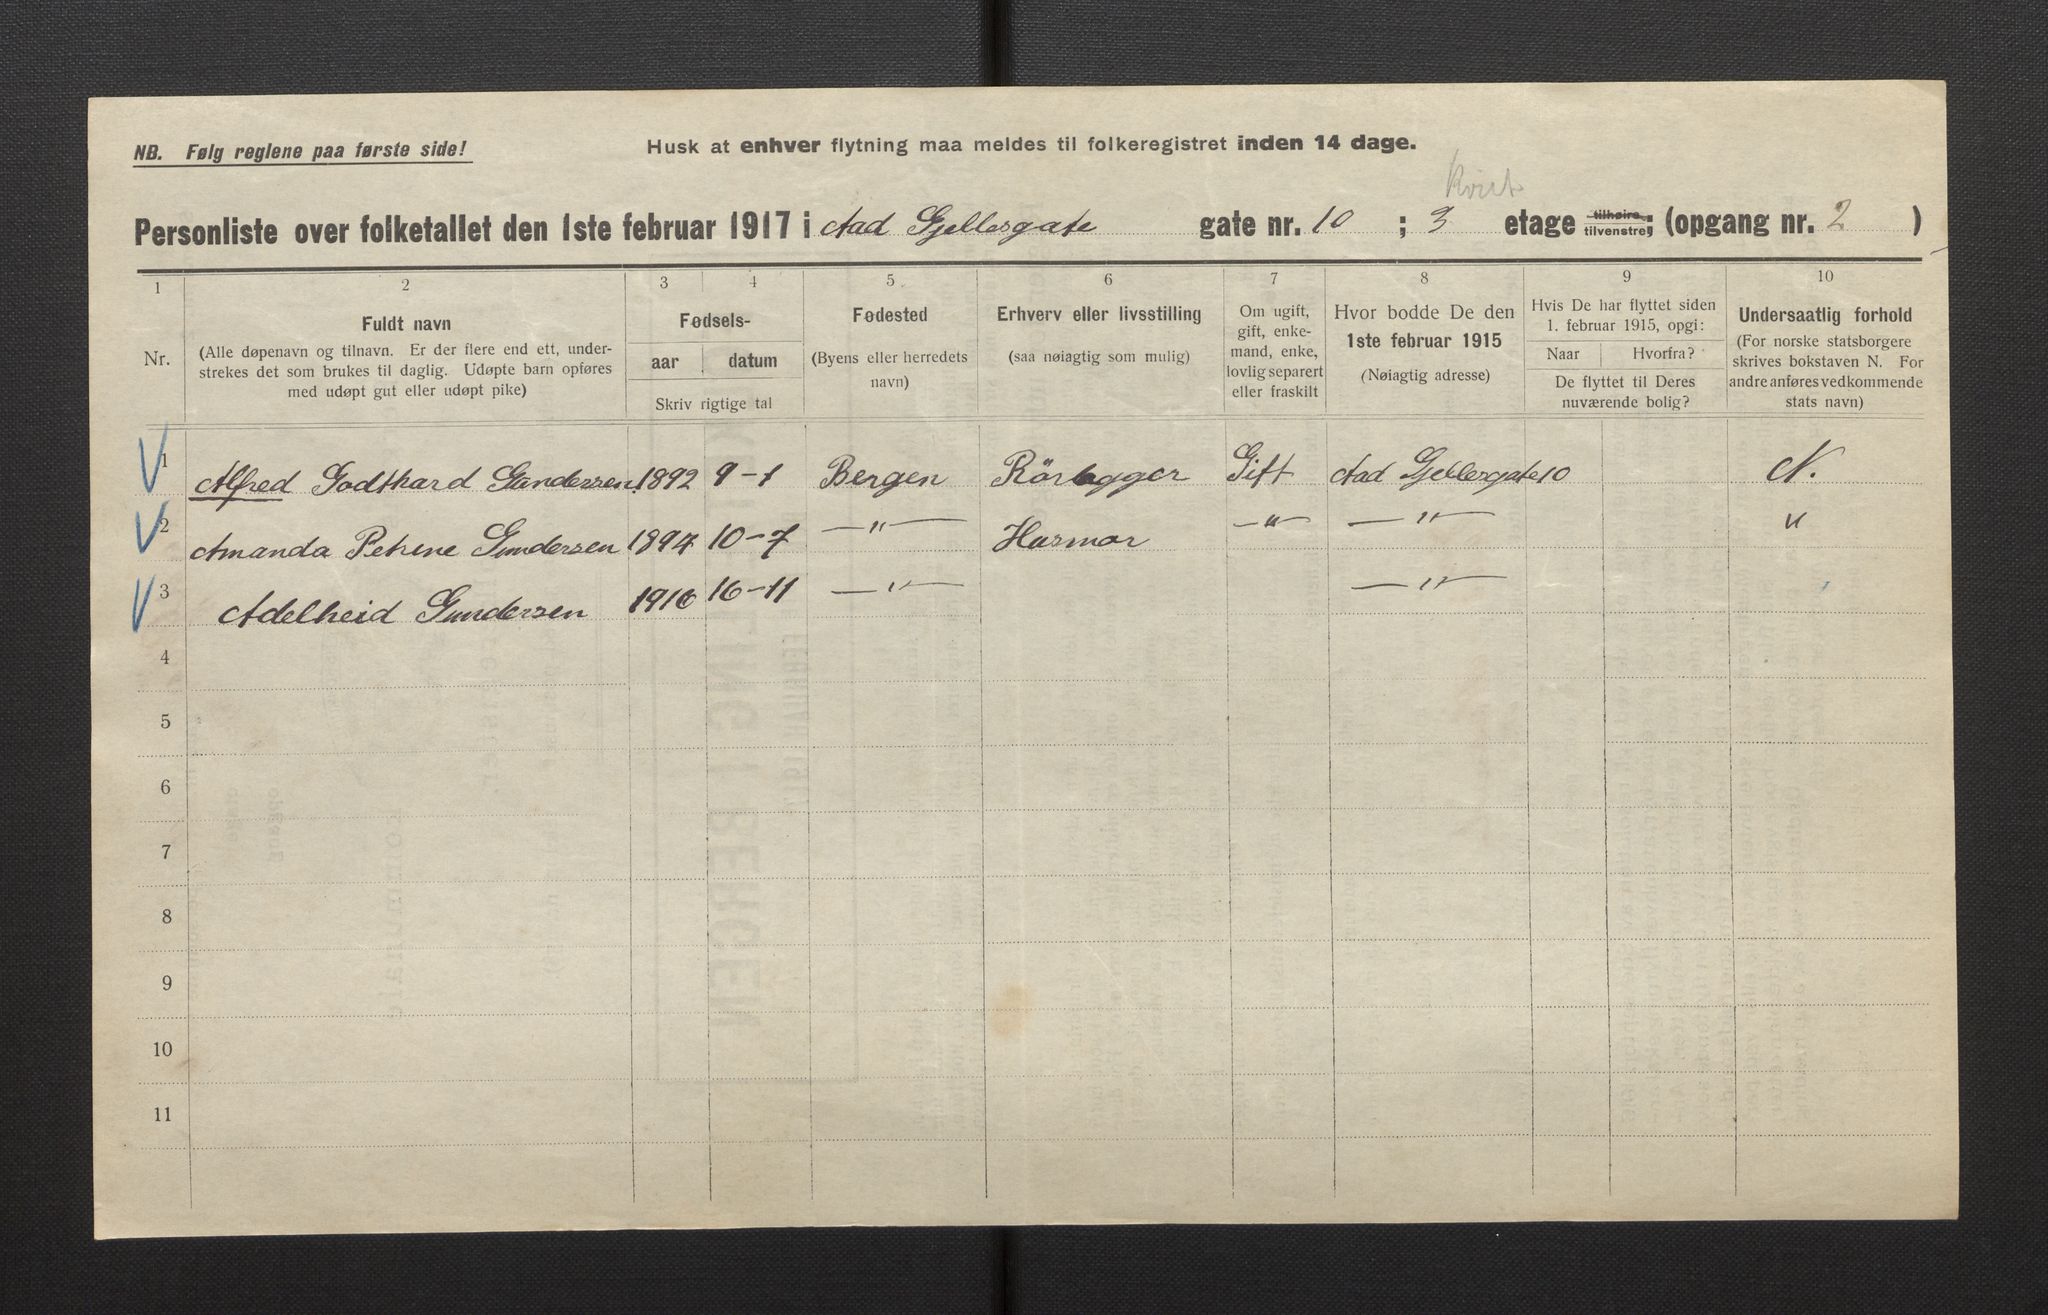 NB. Følg reglene paa første side!
Husk at enhver flytning maa meldes til folkeregistret inden 14 dage.
Kvist
Personliste over folketallet den 1ste februar 1917 i Aad Gjellesgate gate nr. 10 ; 3 etage tilhøire, tilvenstre; (opgang nr. 2 )
1 2 3 4 5 6 7 8 9 10
Nr.
Fuldt navn
(Alle døpenavn og tilnavn. Er der flere end ett, under-
strekes det som brukes til daglig. Udøpte barn opføres
med udøpt gut eller udøpt pike)
Fødsels-
aar datum
Skriv rigtige tal
Fødested
(Byens eller herredets
navn)
Erhverv eller livsstilling
(saa nøiagtig som mulig)
Om ugift,
gift, enke-
mand, enke,
lovlig separert
eller fraskilt
Hvor bodde De den
1ste februar 1915
(Nøiagtig adresse)
Hvis De har flyttet siden
1. februar 1915, opgi:
Naar Hvorfra?
De flyttet til Deres
nuværende bolig?
Undersaatlig forhold
(For norske statsborgere
skrives bokstaven N. For
andre anføres vedkommende
stats navn)
1 Alfred Godthard Gundersen. 1892 9-1 Bergen Rörlegger Gift Aad Gjellesgate 10 N.
2 Amanda Petrine Gundersen 1894 10-7 —"— Husmor —"— —"— "
3 Adelheid Gundersen 1916 16-11 —"— —"—
4
5
6
7
8
9
10
11